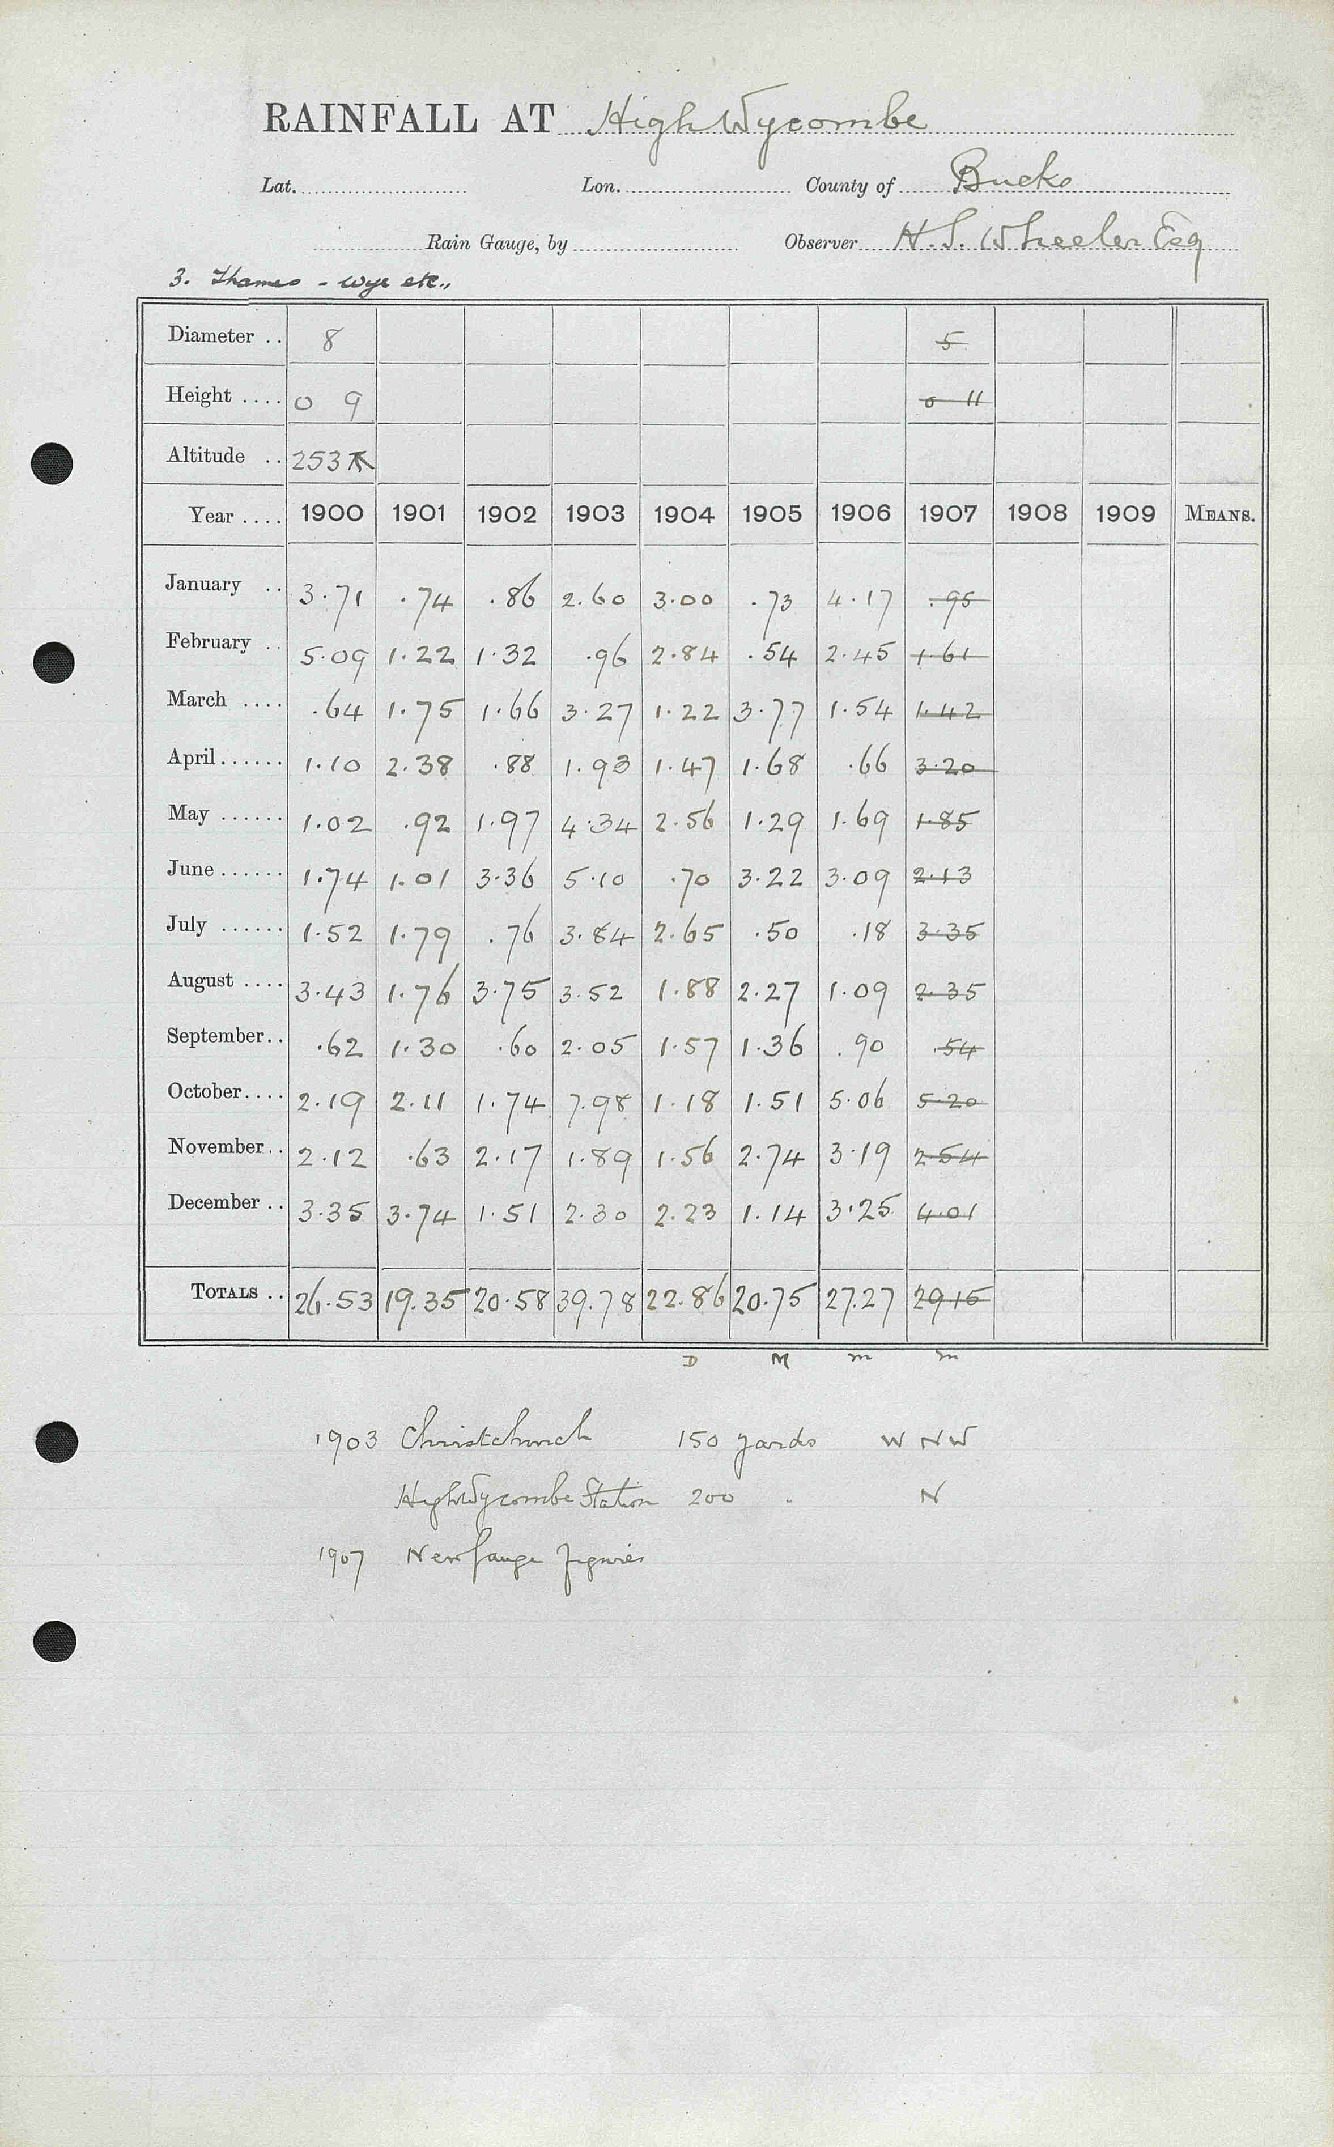 RAINFALL AT High Wycombe
Lat. Lon. County of Bucks
Rain Gauge, by Observer H. S. Wheeler Esq
3. Thames - Wye etc.,
Diameter .. 8 5
Height .... 0 9 0 11
Altitude .. 253
Year .... 1900 1901 1902 1903 1904 1905 1906 1907 1908 1909 MEANS.
January .. 3.71 .74 .86 2.60 3.00 .73 4.17 .95
February .. 5.09 1.22 1.32 .96 2.84 .54 2.45 1.61
March .... .64 1.75 1.66 3.27 1.22 3.77 1.54 1.42
April ...... 1.10 2.38 .88 1.93 1.47 1.68 .66 3.20
May ...... 1.02 .92 1.97 4.34 2.56 1.29 1.69 1.85
June ...... 1.74 1.01 3.36 5.10 .70 3.22 3.09 2.13
July ...... 1.52 1.79 .76 3.84 2.65 .50 .18 3.35
August .... 3.43 1.76 3.75 3.52 1.88 2.27 1.09 2.35
September.. .62 1.30 .60 2.05 1.57 1.36 .90 .54
October.... 2.19 2.11 1.74 7.98 1.18 1.51 5.06 5.20
November .. 2.12 .63 2.17 1.89 1.56 2.74 3.19 2.54
December .. 3.35 3.74 1.51 2.30 2.23 1.14 3.25 4.01
TOTALS .. 26.53 19.35 20.58 39.78 22.86 20.75 27.27 29.15
D M m m
1903 Christchurch 150 yards W N W
High Wycombe Station 200 " N
1907 New gauge figures